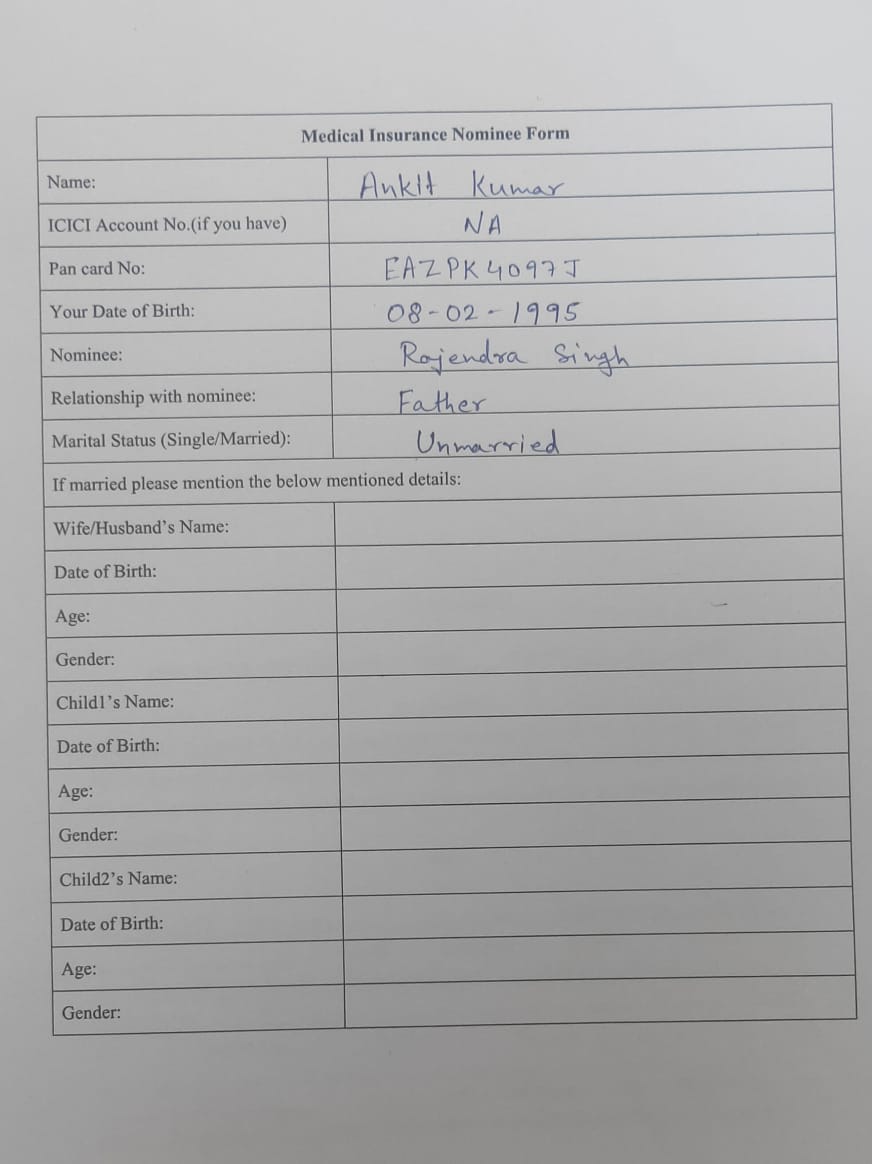 Medical Insurance Nominee Form
Name: Ankit Kumar
ICICI Account No.(if you have) NA
Pan card No: EAZPK4097J
Your Date of Birth: 08-02-1995
Nominee: Rajendra Singh
Relationship with nominee: Father
Marital Status (Single/Married): Unmarried
If married please mention the below mentioned details:
Wife/Husband's Name:
Date of Birth:
Age:
Gender:
Child1's Name:
Date of Birth:
Age:
Gender:
Child2's Name:
Date of Birth:
Age:
Gender: